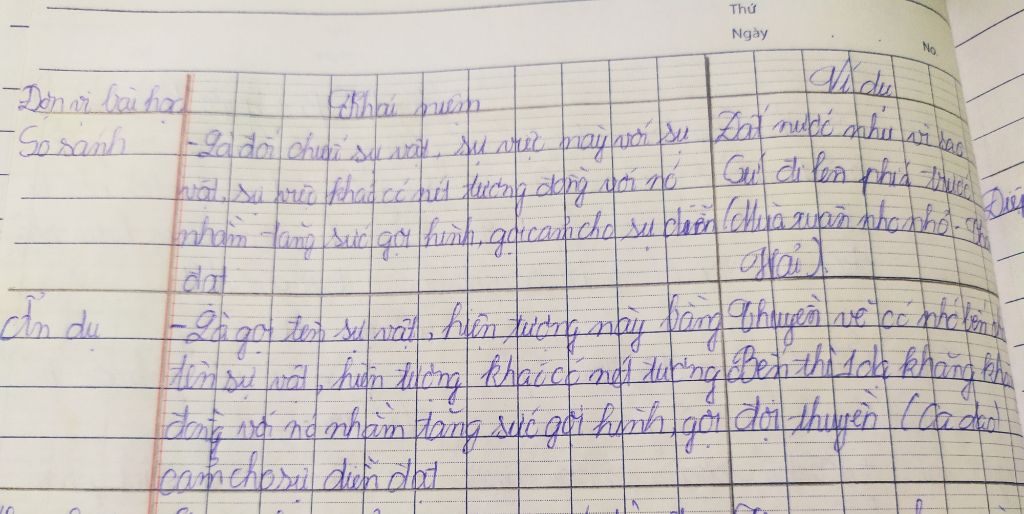 Thứ
Ngày
No.
Đơn vị bài học Khái niệm Ví dụ
So sánh - Là đối chiếu sự vật, sự việc này với sự Đất nước như vì sao
vật, sự việc khác có nét tương đồng với nó Cứ đi lên phía trước
nhằm tăng sức gợi hình, gợi cảm cho sự diễn (Mùa xuân nho nhỏ -
đạt Hải)
Ẩn dụ - Là gọi tên sự vật, hiện tượng này bằng Thuyền về có nhớ bến
tên sự vật, hiện tượng khác có nét tương Bến thì 1 dạ khăng
đồng với nó nhằm tăng sức gợi hình, gợi đợi thuyền (Ca dao)
cảm cho sự diễn đạt